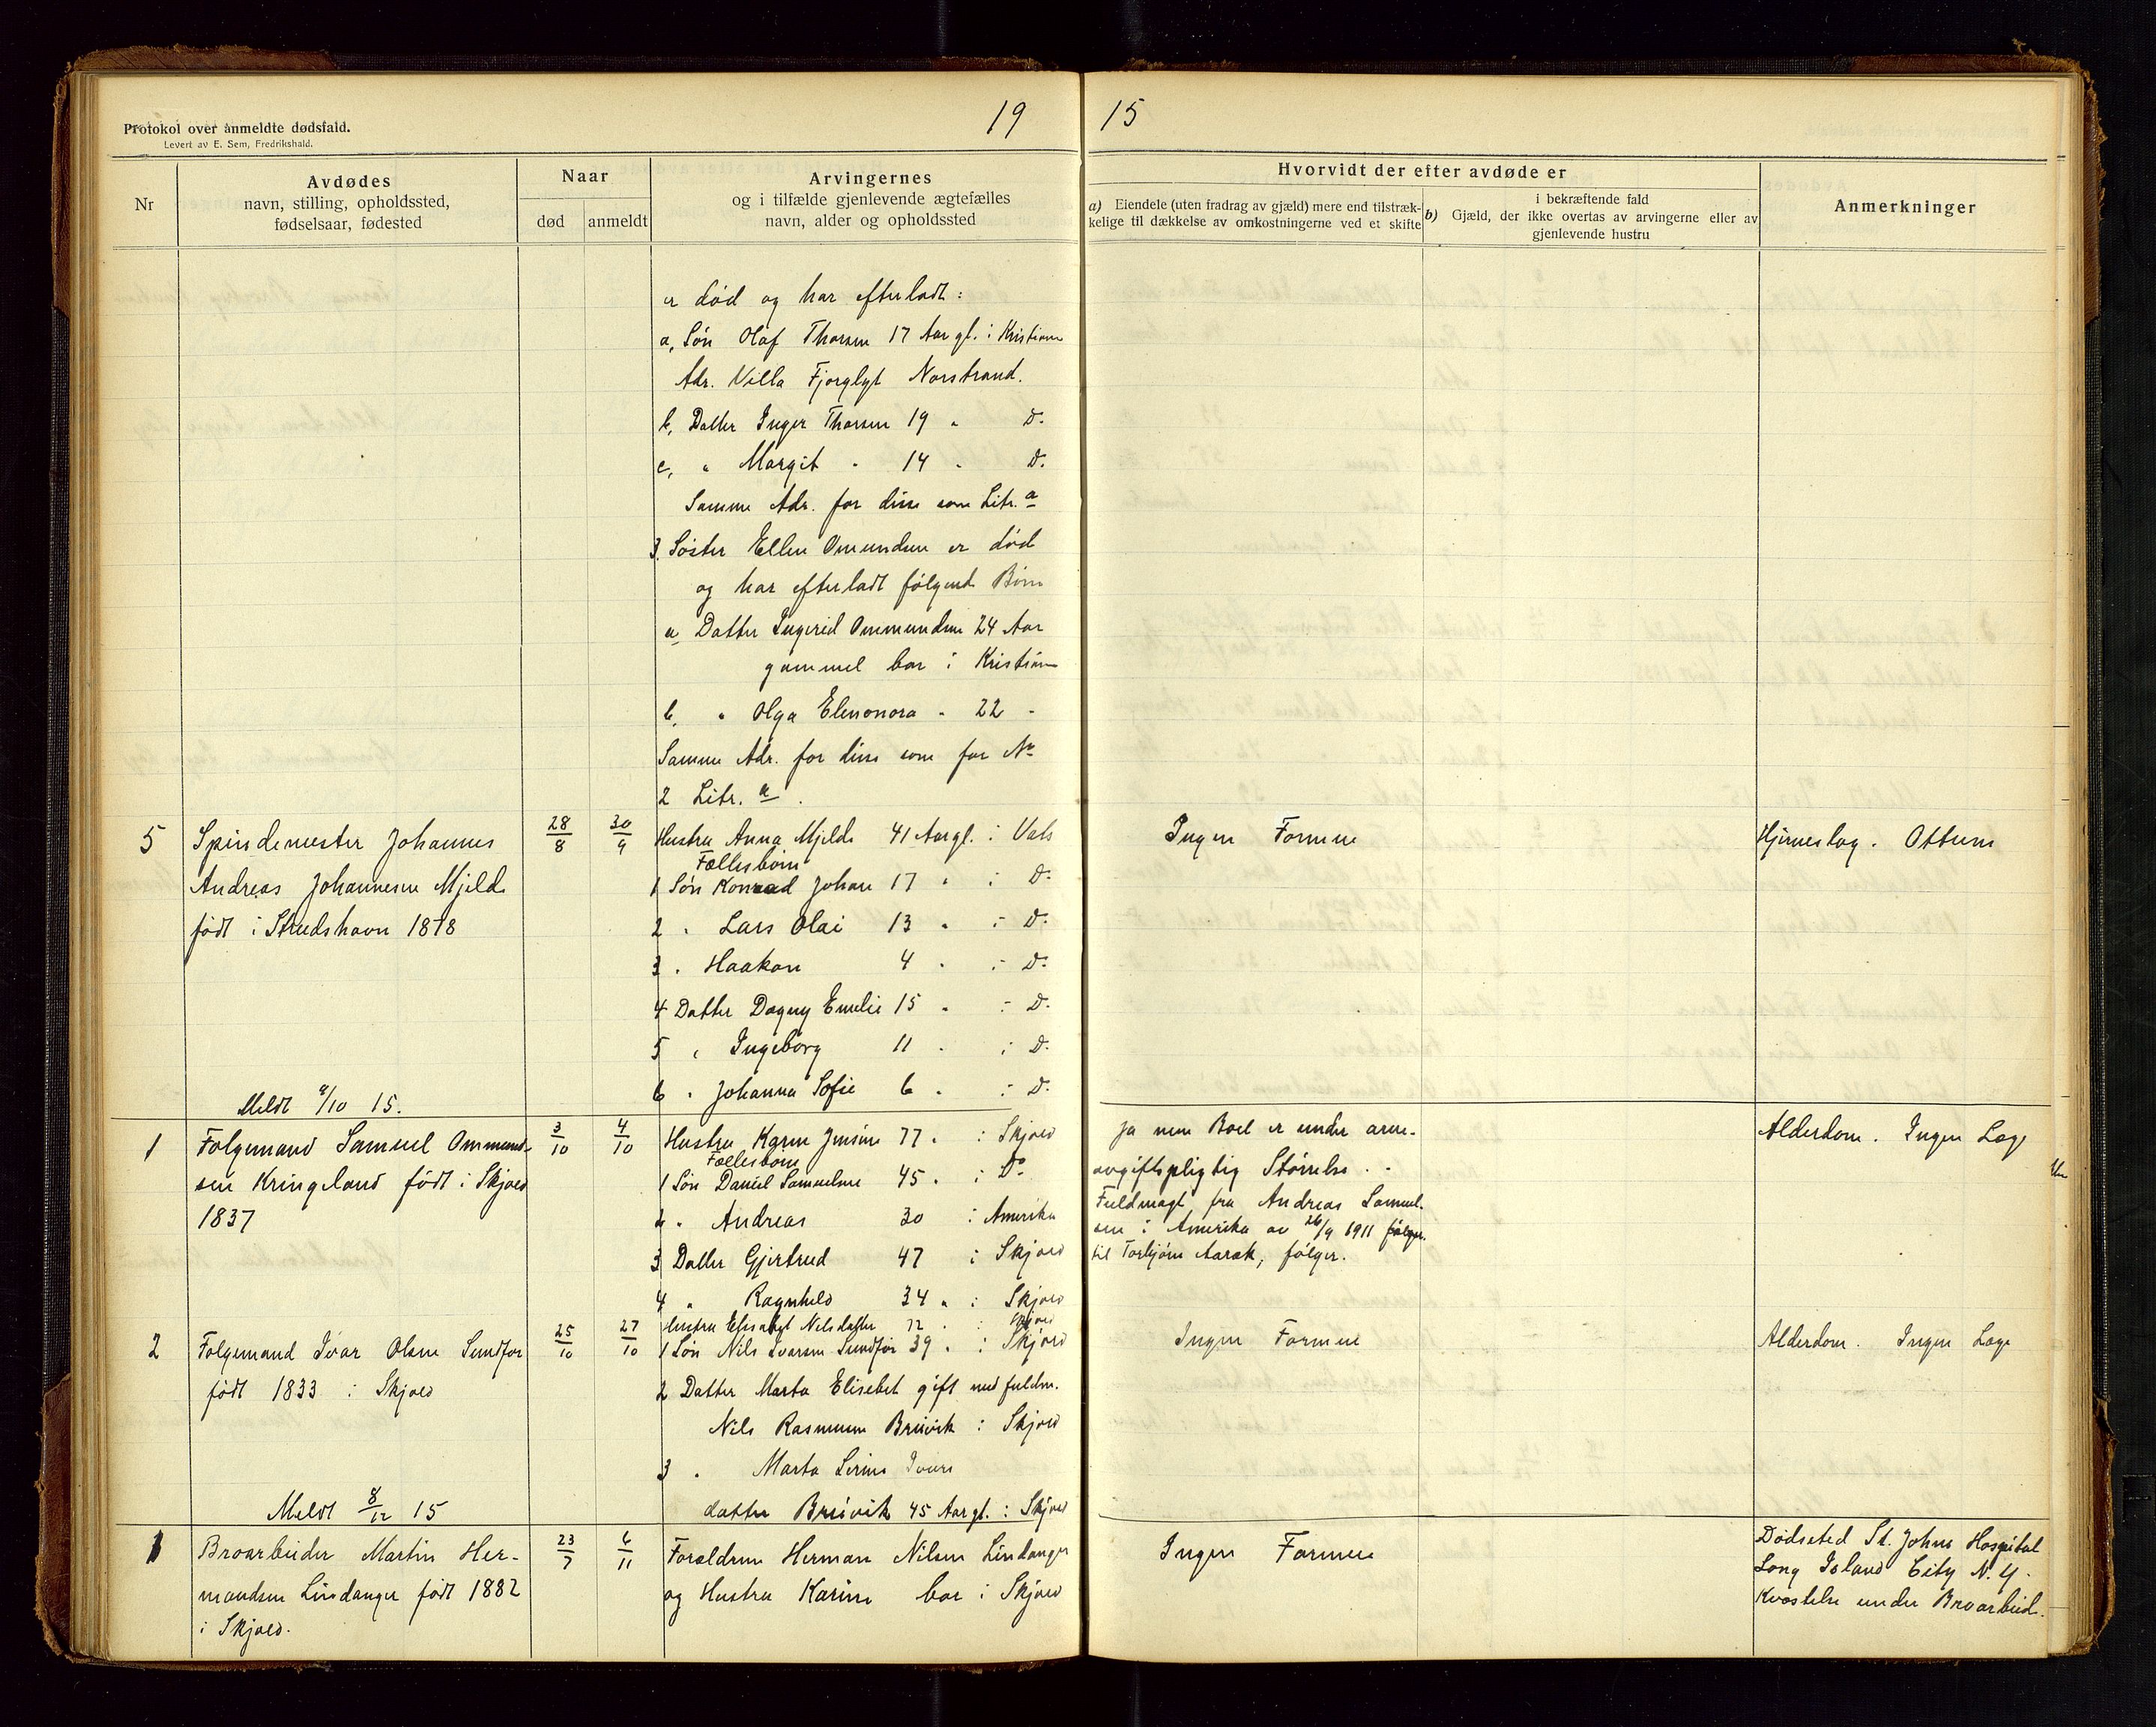 19 15
Protokol over anmeldte dødsfald.
Levert av E. Sem, Fredrikshald.
Nr
Avdødes
navn, stilling, opholdssted,
fødselsaar, fødested
Naar
død
anmeldt
Arvingernes
og i tilfælde gjenlevende ægtefælles
navn, alder og opholdssted
Hvorvidt der efter avdøde er
a) Eiendele (uten fradrag av gjæld) mere end tilstræk-
kelige til dækkelse av omkostningerne ved et skifte
i bekræftende fald
b) Gjæld, der ikke overtas av arvingerne eller av
gjenlevende hustru
Anmerkninger
er død og har efterladt:
a, Søn Olaf Thorsen 17 Aar gl. i Kristiania
Adr. Villa Norstrand.
b, Datter Inger Thorsen 19 " Do.
c, " Margit " 14 " Do.
Samme Adr. for disse som Litr. a
3. Søster Ellen Omundsen er død
og har efterladt følgende Børn
a Datter Ingerid Ommundsen 24 Aar
gammel bor i Kristiania
b, " Olga Elenonora " 22 "
Samme Adr. for disse som for Nr
2 Litr. a.
5
Spindemester Johannes
Andreas Johannesen Mjelde
født i Strudshavn 1878
28/8
30/9
Hustru Anna Mjelde 41 Aar gl. i Vats
Fællesbørn
1 Søn Konrad Johan 17 " i Do.
2 " Lars Olai 13 " i Do.
3 " Haakon 4 " i Do.
4 Datter Dagny Emelie 15 " i Do.
5 " Ingeborg 11 " i Do.
6 " Johanna Sofie 6 " i Do.
Ingen Formue
Hjerneslag. Ottum
Meldt 8/10 15.
1
Folgemand Samuel Ommund-
sen Kringeland født i Skjold
1837
3/10
4/10
Hustru Karen Jensine 77 " i Skjold
Fællesbørn
1 Søn Daniel Samuelsen 45 " i Do
2 " Andreas 30 i Amerika
3 Datter Gjertrud 47 i Skjold
4 " Ragnhild 34 " i Skjold
Ja men Boet er under arve-
avgiftspligtig Størrelse.
Fuldmagt fra Andreas Samuel-
sen i Amerika av 26/9 1911 følger
til Torbjørn Aarak, følger.
Alderdom. Ingen Læge
2
Folgemand Ivar Olsen Sundfør
født 1833 i Skjold
25/10
27/10
Hustru Nilsdatter 72 " i Skjold
1 Søn Nils Ivarsen Sundfør 39 " i Skjold
2 Datter Marta Elisebet gift med fuldm.
Nils Rasmusen Breivik i Skjold
3 " Marta Serine Ivars
datter Breivik 45 Aar gl. i Skjold
Ingen Formue
Alderdom. Ingen Læge
Meldt 8/12 15
1
Broarbeider Martin Her-
mandsen Lindanger født 1882
i Skjold.
23/7
6/11
Forældrene Herman Nilsen Lindanger
og Hustru Karine bor i Skjold
Ingen Formue
Dødssted St. Johns Hospital
Long Island City N.Y.
Kvæstelse under Broarbeid.